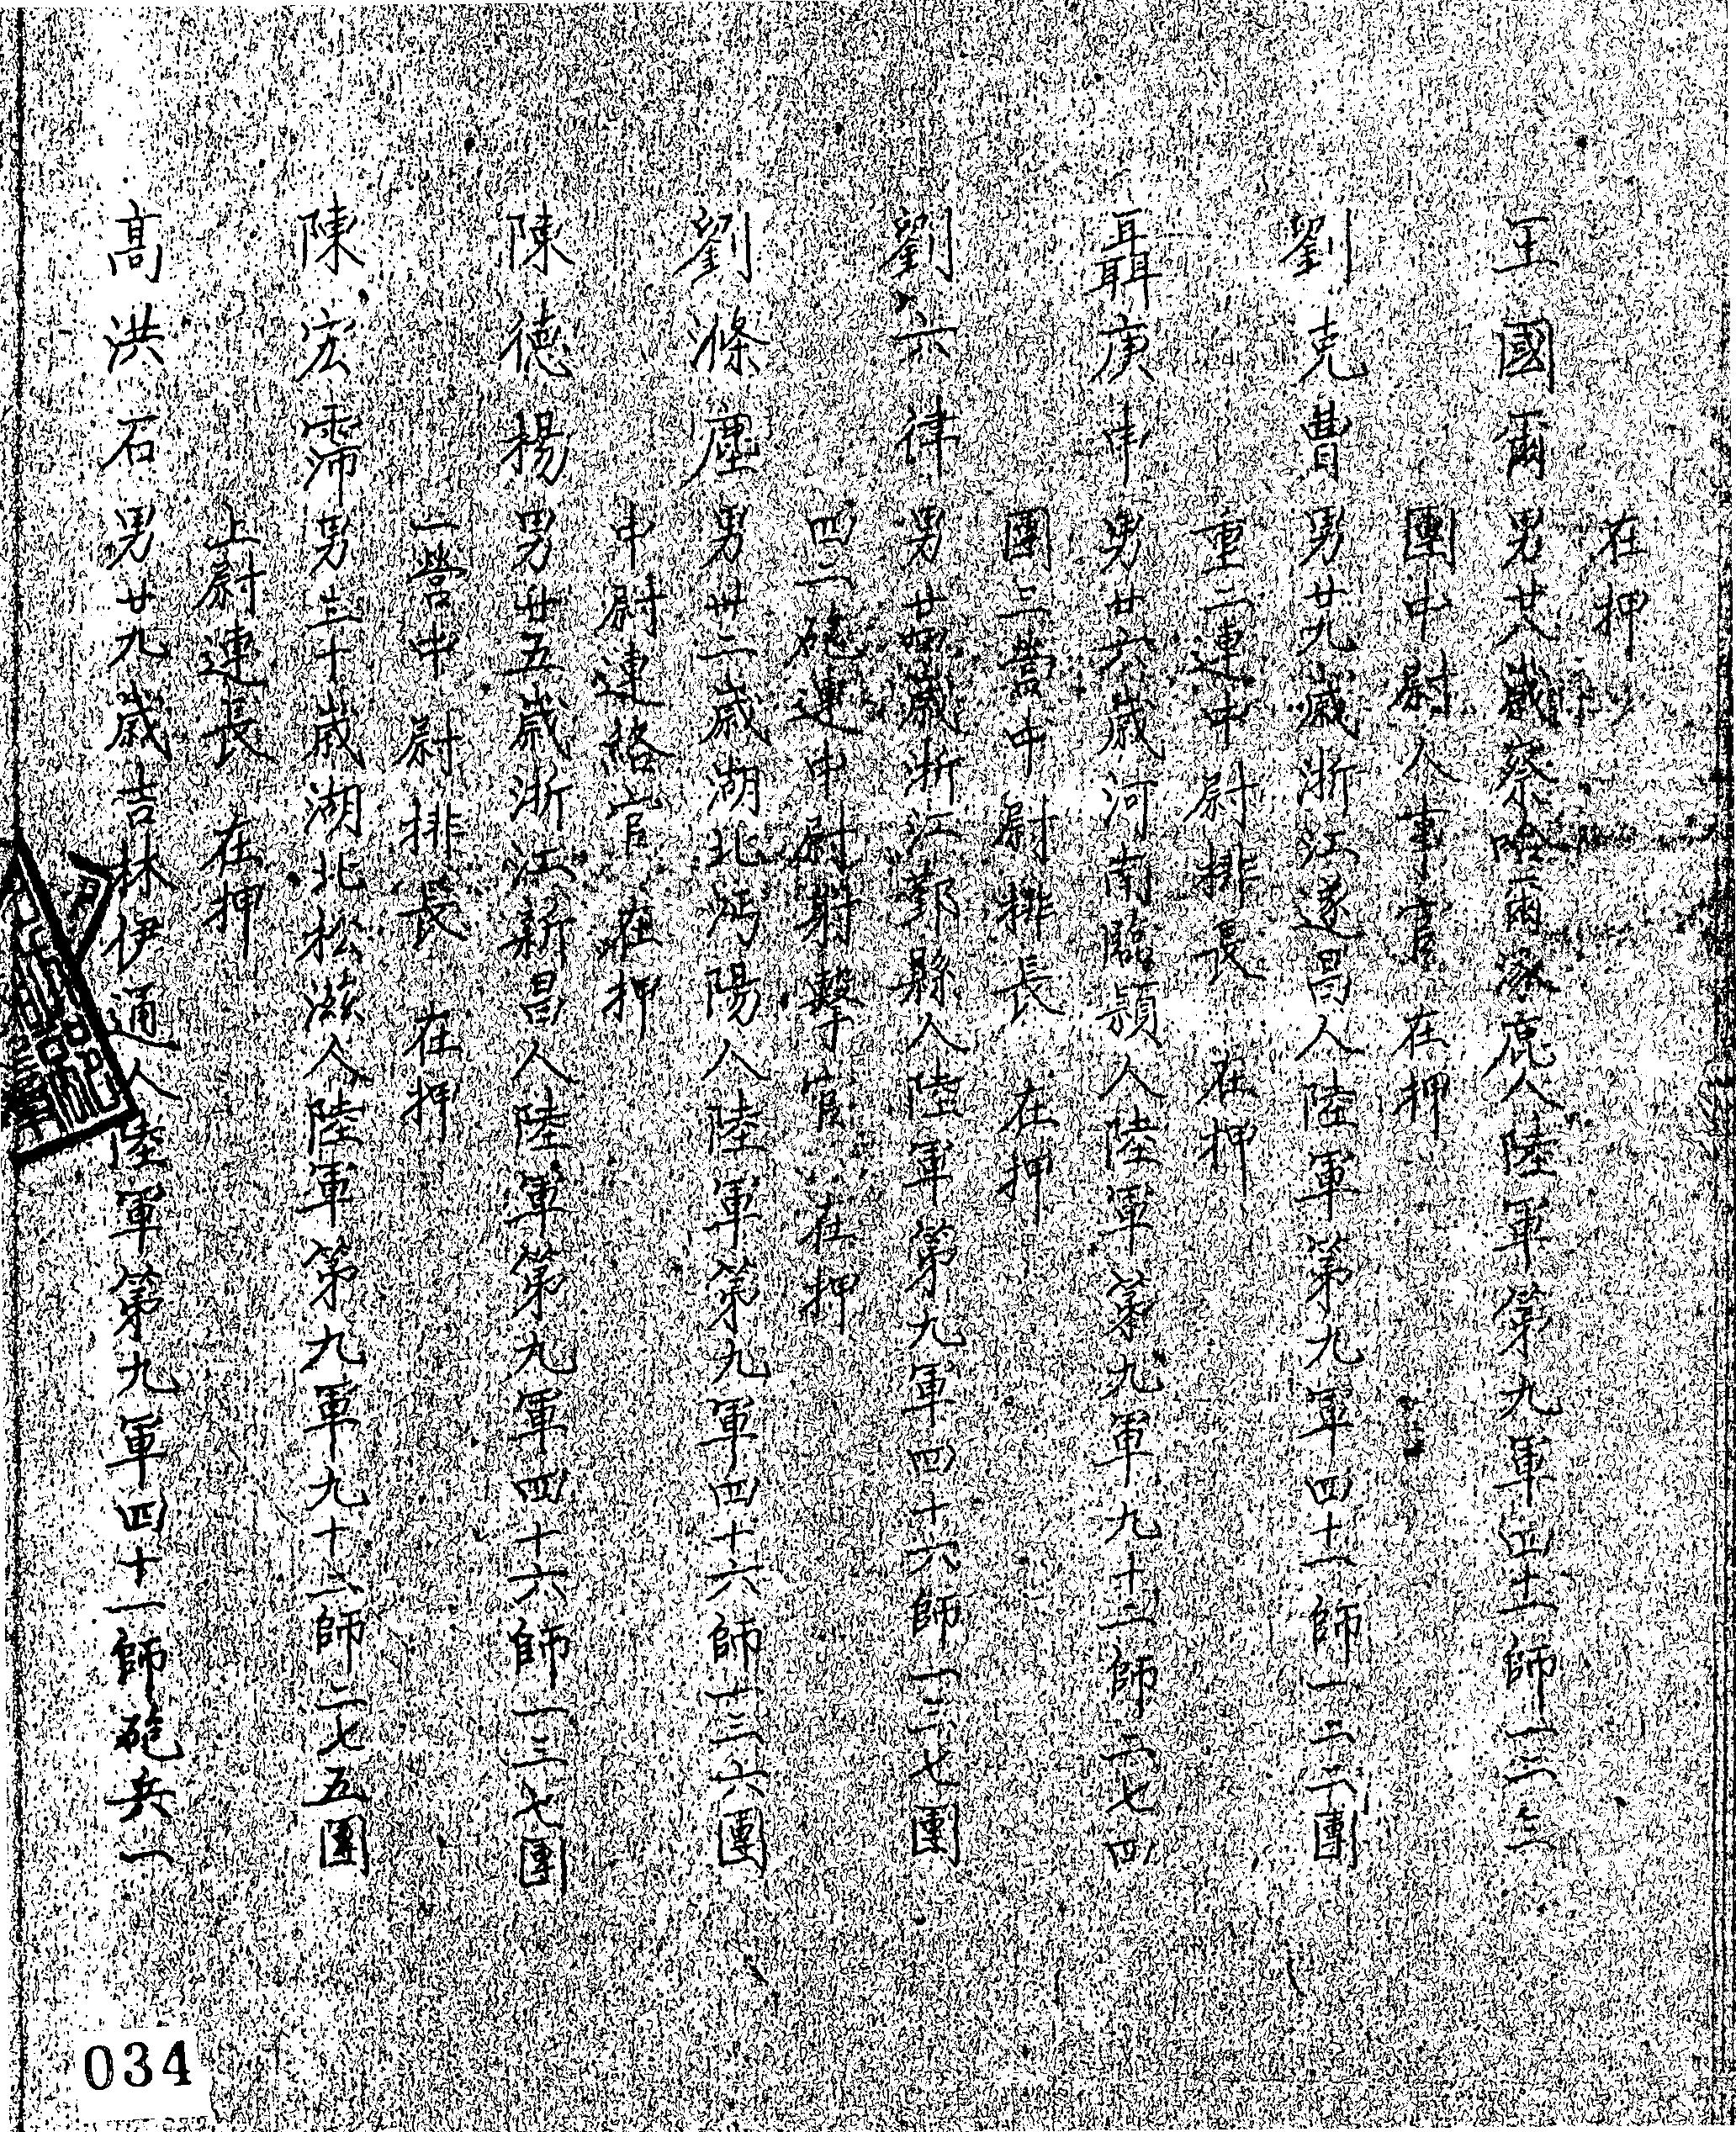 在押
王國爾男廿八歲察哈爾涿鹿人陸軍第九軍四十一師一二三
團中尉人事官 在押
劉克曹男廿九歲浙江遂昌人陸軍第九軍四十一師一二二團
重二連中尉排長 在押
聶庚申男廿六歲河南臨潁人陸軍第九軍九十二師二七四
團二營中尉排長 在押
劉六律男廿四歲浙江鄞縣人陸軍第九軍四十六師一三七團
四二砲連中尉射擊官 在押
劉滌塵男卅二歲湖北沔陽人陸軍第九軍四十六師一三六團
中尉連絡官 在押
陳德楊男廿五歲浙江新昌人陸軍第九軍四十六師一三七團
一營中尉排長 在押
陳宏霈男三十歲湖北松滋人陸軍第九軍九十二師二七五團
上尉連長 在押
高洪石男廿九歲吉林伊通人陸軍第九軍四十一師砲兵一
034